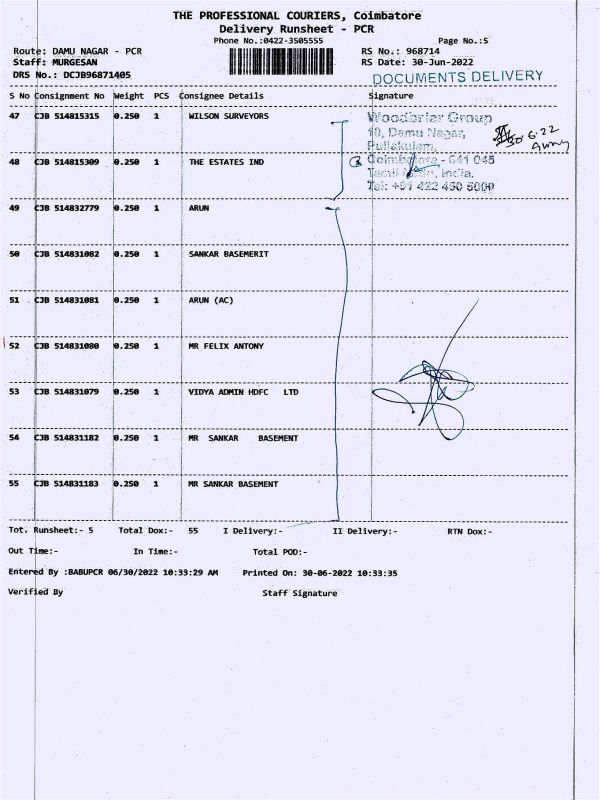 THE PROFESSIONAL COURIERS, Coimbatore
Delivery Runsheet - PCR
Phone No.:0422-3505555 Page No.:5
Route: DAMU NAGAR - PCR RS No.: 968714
Staff: MURGESAN RS Date: 30-Jun-2022
DRS No.: DCJB96871405 DOCUMENTS DELIVERY
S No Consignment No Weight PCS Consignee Details Signature
47 CJB 514815315 0.250 1 WILSON SURVEYORS
Woodbriar Group
10, Damu Nagar,
Puliakulam,
48 CJB 514815309 0.250 1 THE ESTATES IND
Coimbatore - 641 045
Tamil Nadu, India.
Tel: +91 422 450 5000
49 CJB 514832779 0.250 1 ARUN
50 CJB 514831082 0.250 1 SANKAR BASEMERIT
51 CJB 514831081 0.250 1 ARUN (AC)
52 CJB 514831080 0.250 1 MR FELIX ANTONY
53 CJB 514831079 0.250 1 VIDYA ADMIN HDFC LTD
54 CJB 514831182 0.250 1 MR SANKAR BASEMENT
55 CJB 514831183 0.250 1 MR SANKAR BASEMENT
Tot. Runsheet:- 5 Total Dox:- 55 I Delivery:- II Delivery:- RTN Dox:-
Out Time:- In Time:- Total POD:-
Entered By :BABUPCR 06/30/2022 10:33:29 AM Printed On: 30-06-2022 10:33:35
Verified By Staff Signature